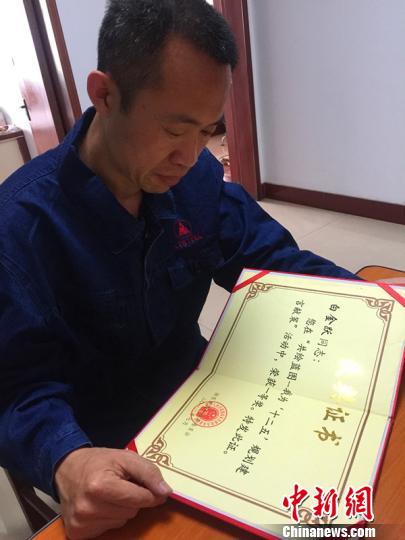 证书
白金跃同志：
您在“共绘蓝图—我为‘十二五’规划建
言献策”活动中，荣获一等奖。特发此证。
中新网
Chinanews.com